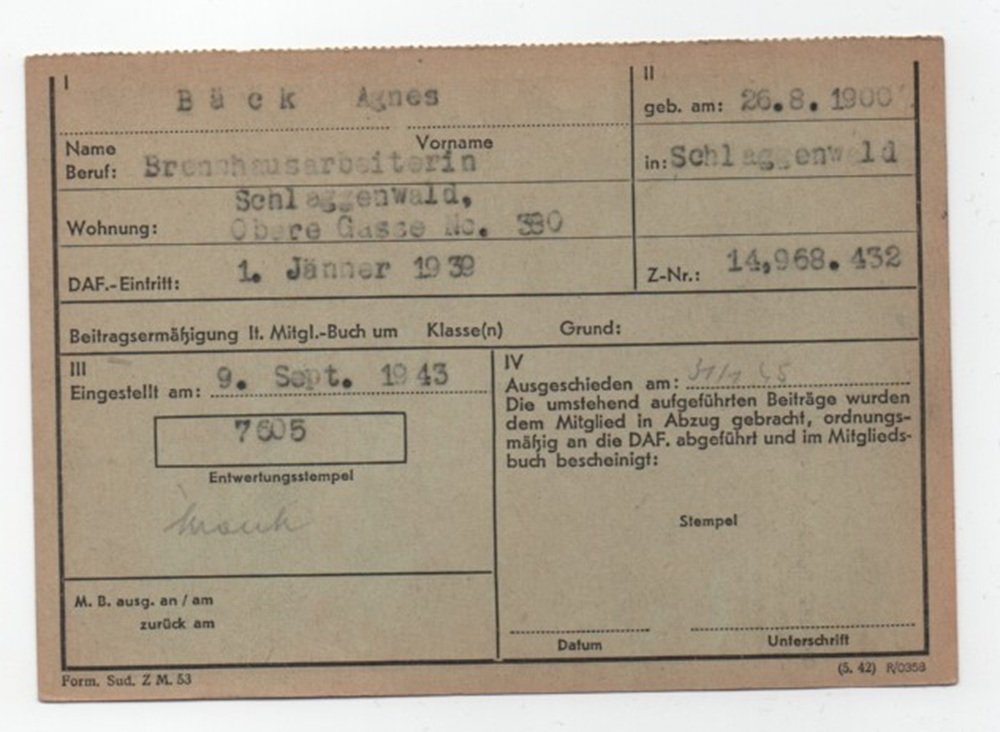 I
Bäck Agnes
Name Vorname
Beruf: Brennhausarbeiterin
Schlaggenwald,
Wohnung: Obere Gasse No. 380
DAF.-Eintritt: 1. Jänner 1939
II
geb. am: 26.8. 1900
in: Schlaggenwald
Z-Nr.: 14,968.432
Beitragsermäßigung lt. Mitgl.-Buch um Klasse(n) Grund:
III
Eingestellt am: 9. Sept. 1943
7605
Entwertungsstempel
krank
M. B. ausg. an / am
zurück am
IV
Ausgeschieden am:
Die umstehend aufgeführten Beiträge wurden
dem Mitglied in Abzug gebracht, ordnungs-
mäßig an die DAF. abgeführt und im Mitglieds-
buch bescheinigt:
Stempel
Datum Unterschrift
Form. Sud. Z M. 53
(5. 42) R/0358